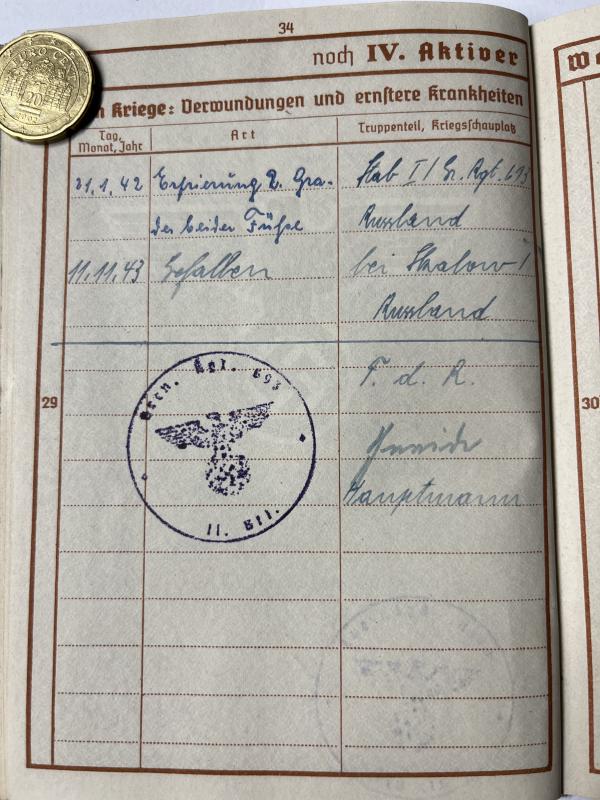 34
noch IV. Aktiver
Kriege: Verwundungen und ernstere Krankheiten
Tag, Monat, Jahr
Art
Truppenteil, Kriegsschauplatz
21.1.42 Erfrierung 2. Gra- Stab I / Gr. Rgt. 693
des beider Füße Russland
11.11.43 Gefallen bei
Russland
29
T. d. R.
Hauptmann
Gren. Rgt. 693
II. Btl.
EURO CENT
20
2002
30